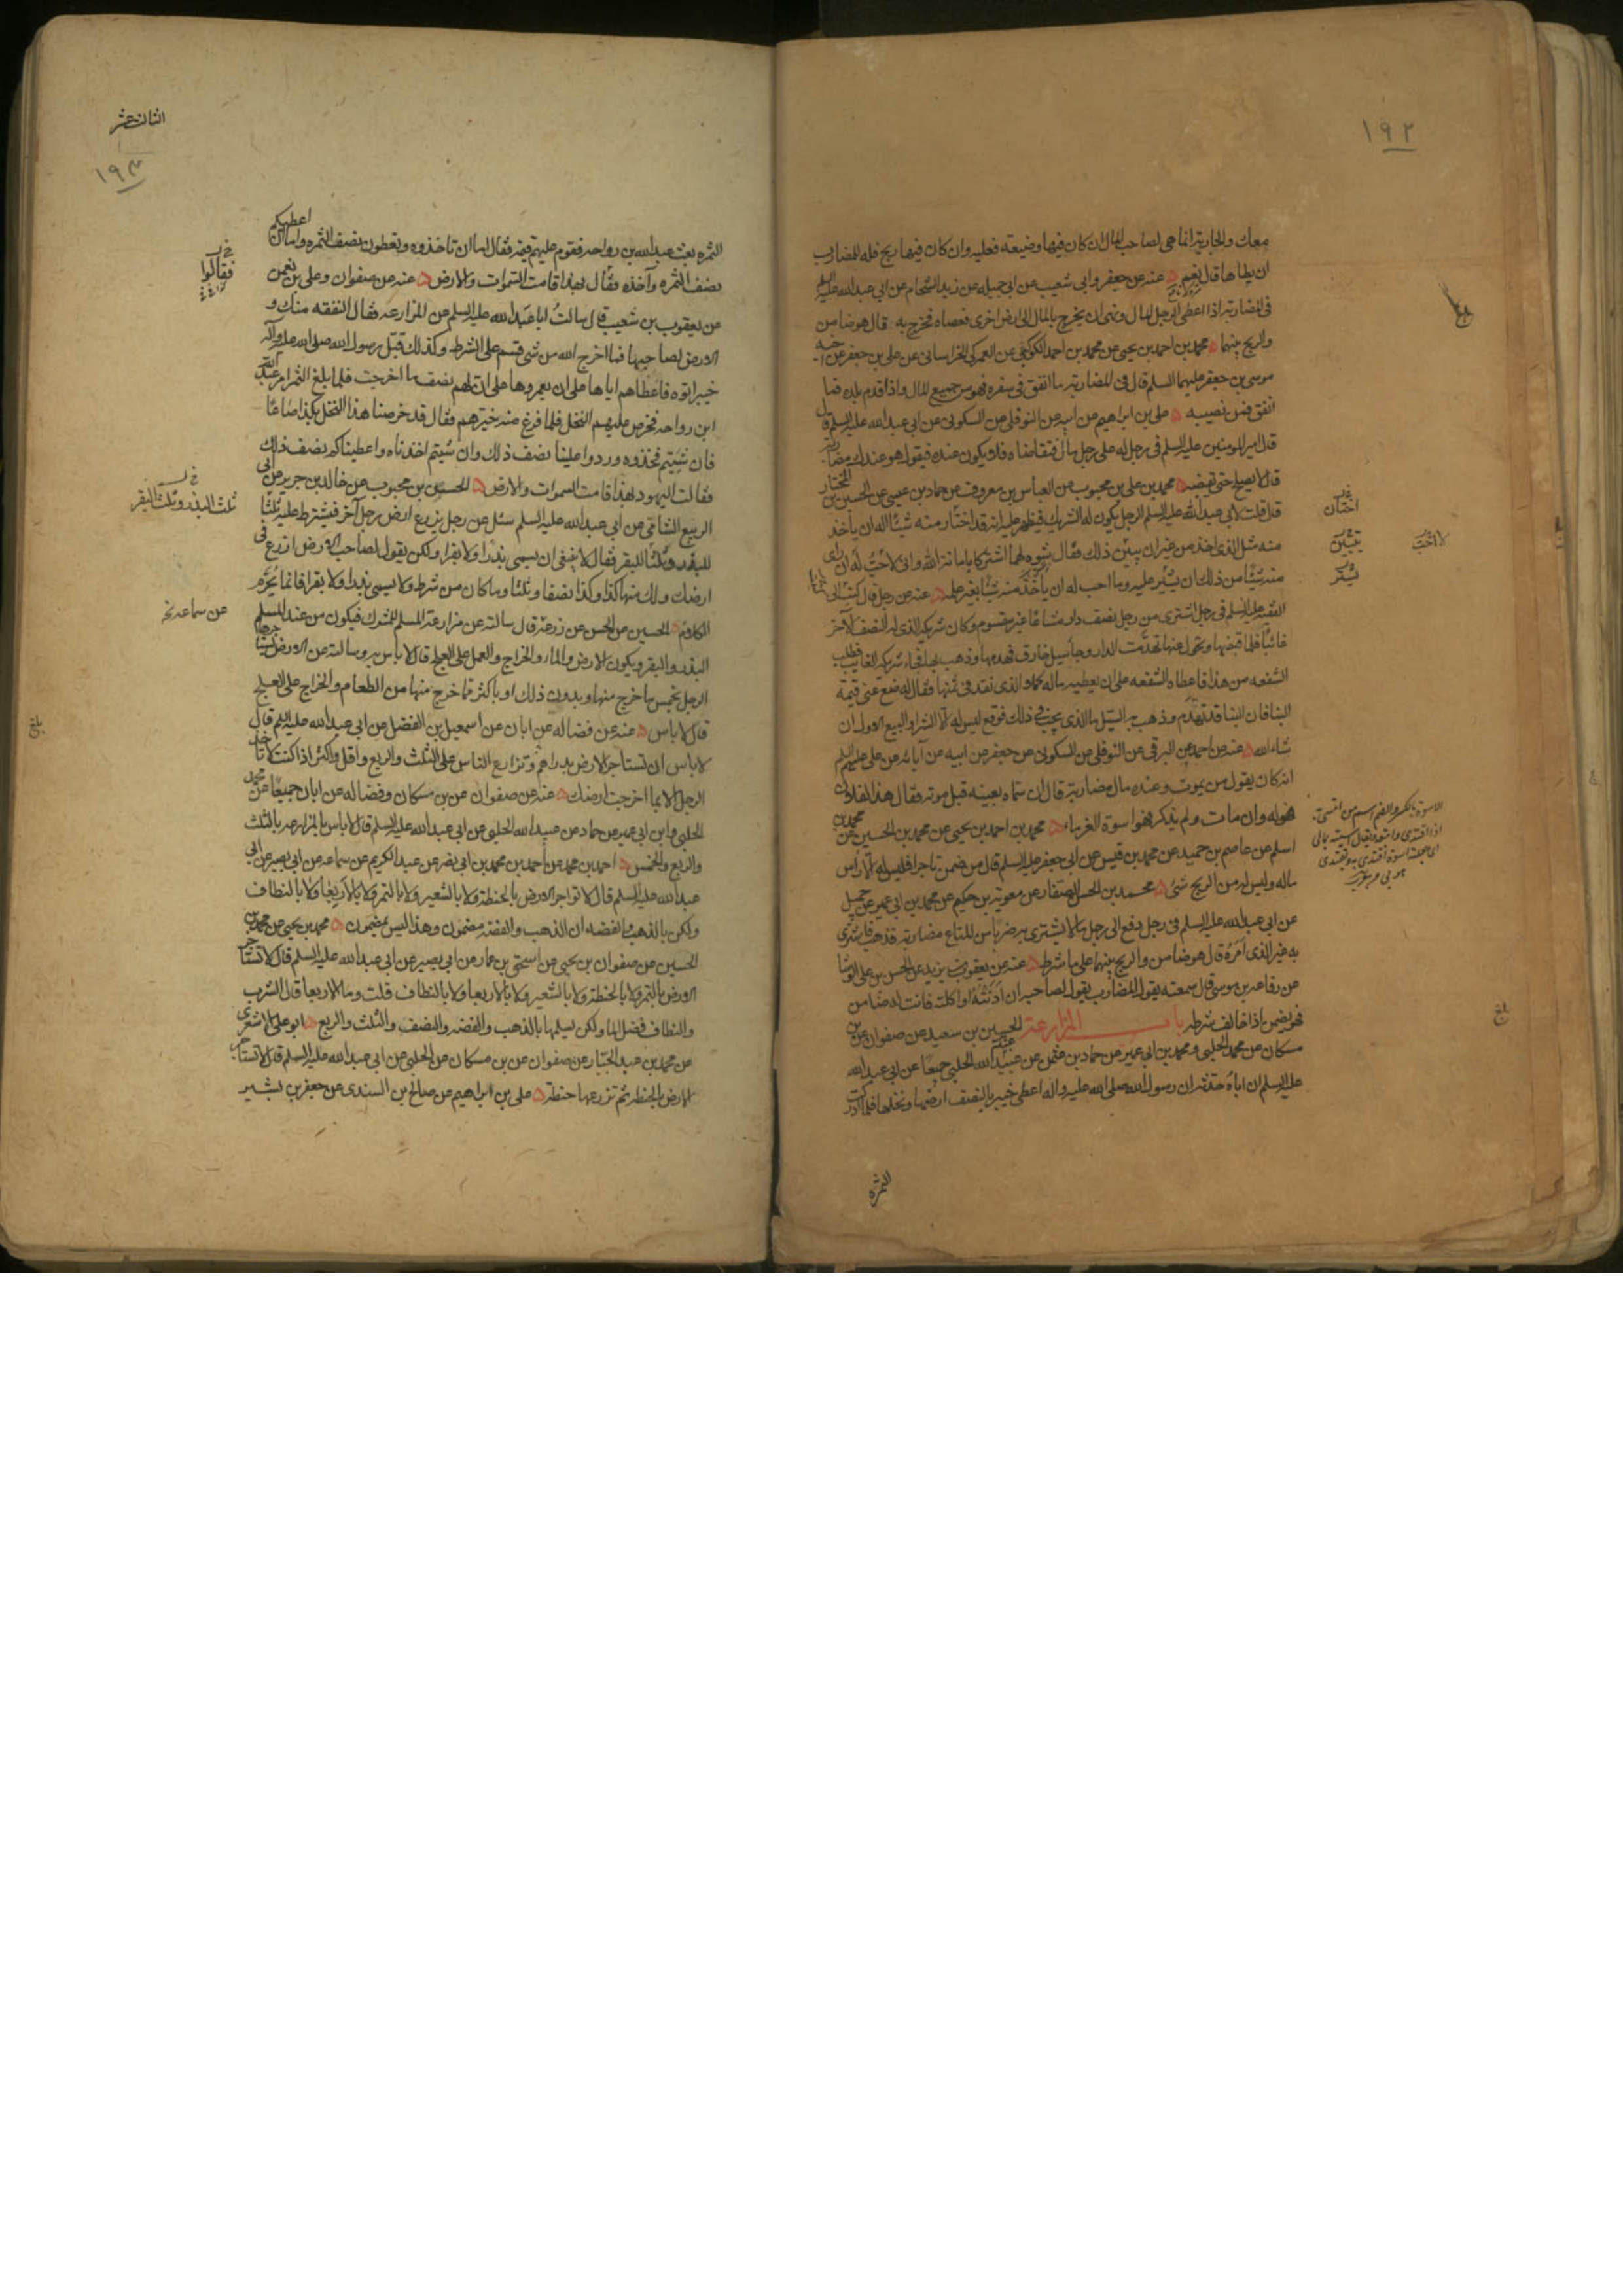 ١٩٢
معك والجارية انما هي لصاحب المال ان كان فيها وضيعة فعليه وان كان فيها ربح فله للمضارب
ان يطاها قال نعم عنه عن جعفر وابي شعيب عن ابي جميله عن زيد الشحام عن ابي عبد الله عليه السلم
في المضاربة اذا اعطى الرجل المال ونهى ان يخرج بالمال الى ارض اخرى فعصاه فخرج به قال هو ضامن
والربح بينهما محمد بن احمد بن يحيى عن محمد بن احمد الكوكبي عن العمركي الخراساني عن علي بن جعفر عن اخيه
موسى بن جعفر عليهما السلم قال في المضاربة ما انفق في سفره فهو من جميع المال واذا قدم بلده فما
انفق فمن نصيبه علي بن ابراهيم عن ابيه عن النوفلي عن السكوني عن ابي عبد الله عليه السلم قال
قال امير المومنين عليه السلم في رجل له على رجل مال فتقاضاه فلا يكون عنده فيقول هو عندك مضاربة
قال لا يصلح حتى تقبضه محمد بن علي بن محبوب عن العباس بن معروف عن حماد بن عيسى عن الحسين بن المختار
قال قلت لابي عبد الله عليه السلم الرجل يكون له الشريك فيظهر عليه انه قد اختار منه شيئا اله ان ياخذ
منه مثل الذي اخذ من غير ان يبين ذلك فقال شوه لهما اشتركا بامانة الله واني لا احب له ان راى
منه شيئا من ذلك ان يستر عليه وما احب له ان ياخذ منه شيئا بغير علمه عنه عن رجل قال كتبت الى
الفقيه عليه السلم في رجل اشترى من رجل نصف دار مشاعا غير مقسوم وكان شريكه الذي له النصف الآخر
غائبا فلما قبضها وتحول عنها تهدمت الدار وجا سيل خارق فهدمها وذهب بها فجاء شريكه الغايب فطلب
الشفعه من هذا فاعطاه الشفعه على ان يعطيه ماله كملا الذي نقد في ثمنها فقال له ضع عني قيمة
البنا فان البنا قد تهدم وذهب به السيل ما الذي يجب في ذلك فوقع ليس له الا الشرا والبيع الاول ان
شاء الله عنه عن احمد عن البرقي عن النوفلي عن السكوني عن جعفر عن ابيه عن آبائه عن علي عليهم السلم
انه كان يقول من يموت وعنده مال مضاربة قال ان سماه بعينه قبل موته فقال هذا لفلان
فهو له وان مات ولم يذكر فهو اسوة الغرماء محمد بن احمد بن يحيى عن محمد بن الحسين عن محمد بن
اسلم عن عاصم بن حميد عن محمد بن قيس عن ابي جعفر عليه السلم قال من ضمن تاجرا فليس له الا راس
ماله وليس له من الربح شئ محمد بن الحسن الصفار عن معوية بن حكيم عن محمد بن ابي عمير عن جميل
عن ابي عبد الله عليه السلم في رجل دفع الى رجل مالا يشتري به ضربا من المتاع مضاربة فذهب فاشترى
به غير الذي امره قال هو ضامن والربح بينهما على ما شرط عنه عن يعقوب بن يزيد عن الحسن بن علي الوشا
عن رفاعه بن موسى قال سمعته يقول المضارب يقول لصاحبه ان ادنته او اكلته فانت له ضامن
فهو يضمن اذا خالف شرطه باب المزارعة الحسين بن سعيد عن صفوان عن بن
مسكان عن محمد الحلبي ومحمد بن ابي عمير عن حماد بن عثمن عن عبيد الله الحلبي جميعا عن ابي عبد الله
عليه السلم ان اباه حدثه ان رسول الله صلى الله عليه واله اعطى خيبر بالنصف ارضها ونخلها فلما ادركت
الثمره
بلغ
اختان
لا احب
يبين
يستر
الاسوة بالكسر والضم اسم من
بلغ
الثالث عشر
١٩٣
الثمره بعث عبد الله بن رواحه فقوم عليهم قيمة فقال اما ان تاخذوه وتعطون نصف الثمره واما ان اعطيكم
نصف الثمره وآخذه فقال بهذا قامت السموات والارض عنه عن صفوان وعلي بن نعمن
عن يعقوب بن شعيب قال سالت ابا عبد الله عليه السلم عن المزارعه فقال النفقه منك و
الارض لصاحبها فما اخرج الله من شي قسم على الشرط وكذلك قبل رسول الله صلى الله عليه وآله
خيبر اتوه فاعطاهم اياها على ان يعمروها على ان لهم نصف ما اخرجت فلما بلغ الثمر امر عبد الله
ابن رواحه فخرص عليهم النخل فلما فرغ منه خيرهم فقال قد خرصنا هذا النخل بكذا صاعا
فان شيتم فخذوه وردوا علينا نصف ذلك وان شيتم اخذناه واعطيناكم نصف ذلك
فقالت اليهود بهذا قامت السموات والارض الحسن بن محبوب عن خالد بن جرير عن ابي
الربيع الشامي عن ابي عبد الله عليه السلم سئل عن رجل يزرع ارض رجل آخر فيشترط عليه ثلثا
للبذر وثلثا للبقر فقال لا ينبغي ان يسمي بذرا ولا بقرا ولكن يقول لصاحب الارض ازرع في
ارضك ولك منها كذا وكذا نصفا وثلثا وما كان من شرط ولا يسمي بذرا ولا بقرا فانما يحرم
الكلام الحسين عن الحسن عن زرعة قال سالته عن مزارعة المسلم المشرك فيكون من عند المسلم
البذر والبقر ويكون الارض والماء والخراج والعمل على العلج قال لا باس به وسالته عن الارض يستاجرها
الرجل بخمس ما خرج منها وبدون ذلك او باكثر مما خرج منها من الطعام والخراج على العلج
قال لا باس عنه عن فضاله عن ابان عن اسمعيل بن الفضل عن ابي عبد الله عليه السلم قال
لا باس ان تستاجر الارض بدراهم وتزارع الناس على الثلث والربع واقل واكثر اذا كنت لا تاخذ
الرجل الا بما اخرجت ارضك عنه عن صفوان عن بن مسكان وفضاله عن ابان جميعا عن محمد
الحلبي وابن ابي عمير عن حماد عن عبيد الله الحلبي عن ابي عبد الله عليه السلم قال لا باس بالمزارعه بالثلث
والربع والخمس احمد بن محمد عن احمد بن محمد بن ابي نصر عن عبد الكريم عن سماعه عن ابي بصير عن ابي
عبد الله عليه السلم قال لا تواجر الارض بالحنطة ولا بالشعير ولا بالتمر ولا بالاربعا ولا بالنطاف
ولكن بالذهب والفضه ان الذهب والفضه مضمون وهذا ليس بمضمون محمد بن يحيى عن محمد بن
الحسين عن صفوان بن يحيى عن اسحق بن عمار عن ابي بصير عن ابي عبد الله عليه السلم قال لا تستاجر
الارض بالتمر ولا بالحنطة ولا بالشعير ولا بالاربعا ولا بالنطاف قلت وما الاربعا قال الشرب
والنطاف فضل الما ولكن يسلمها بالذهب والفضه والنصف والثلث والربع ابو علي الاشعري
عن محمد بن عبد الجبار عن صفوان عن بن مسكان عن الحلبي عن ابي عبد الله عليه السلم قال لا تستاجر
الارض بالحنطه ثم تزرعها حنطة علي بن ابراهيم عن صالح بن السندي عن جعفر بن بشير
فقالوا
ثلث البذر وثلث البقر
عن سماعه
بلغ